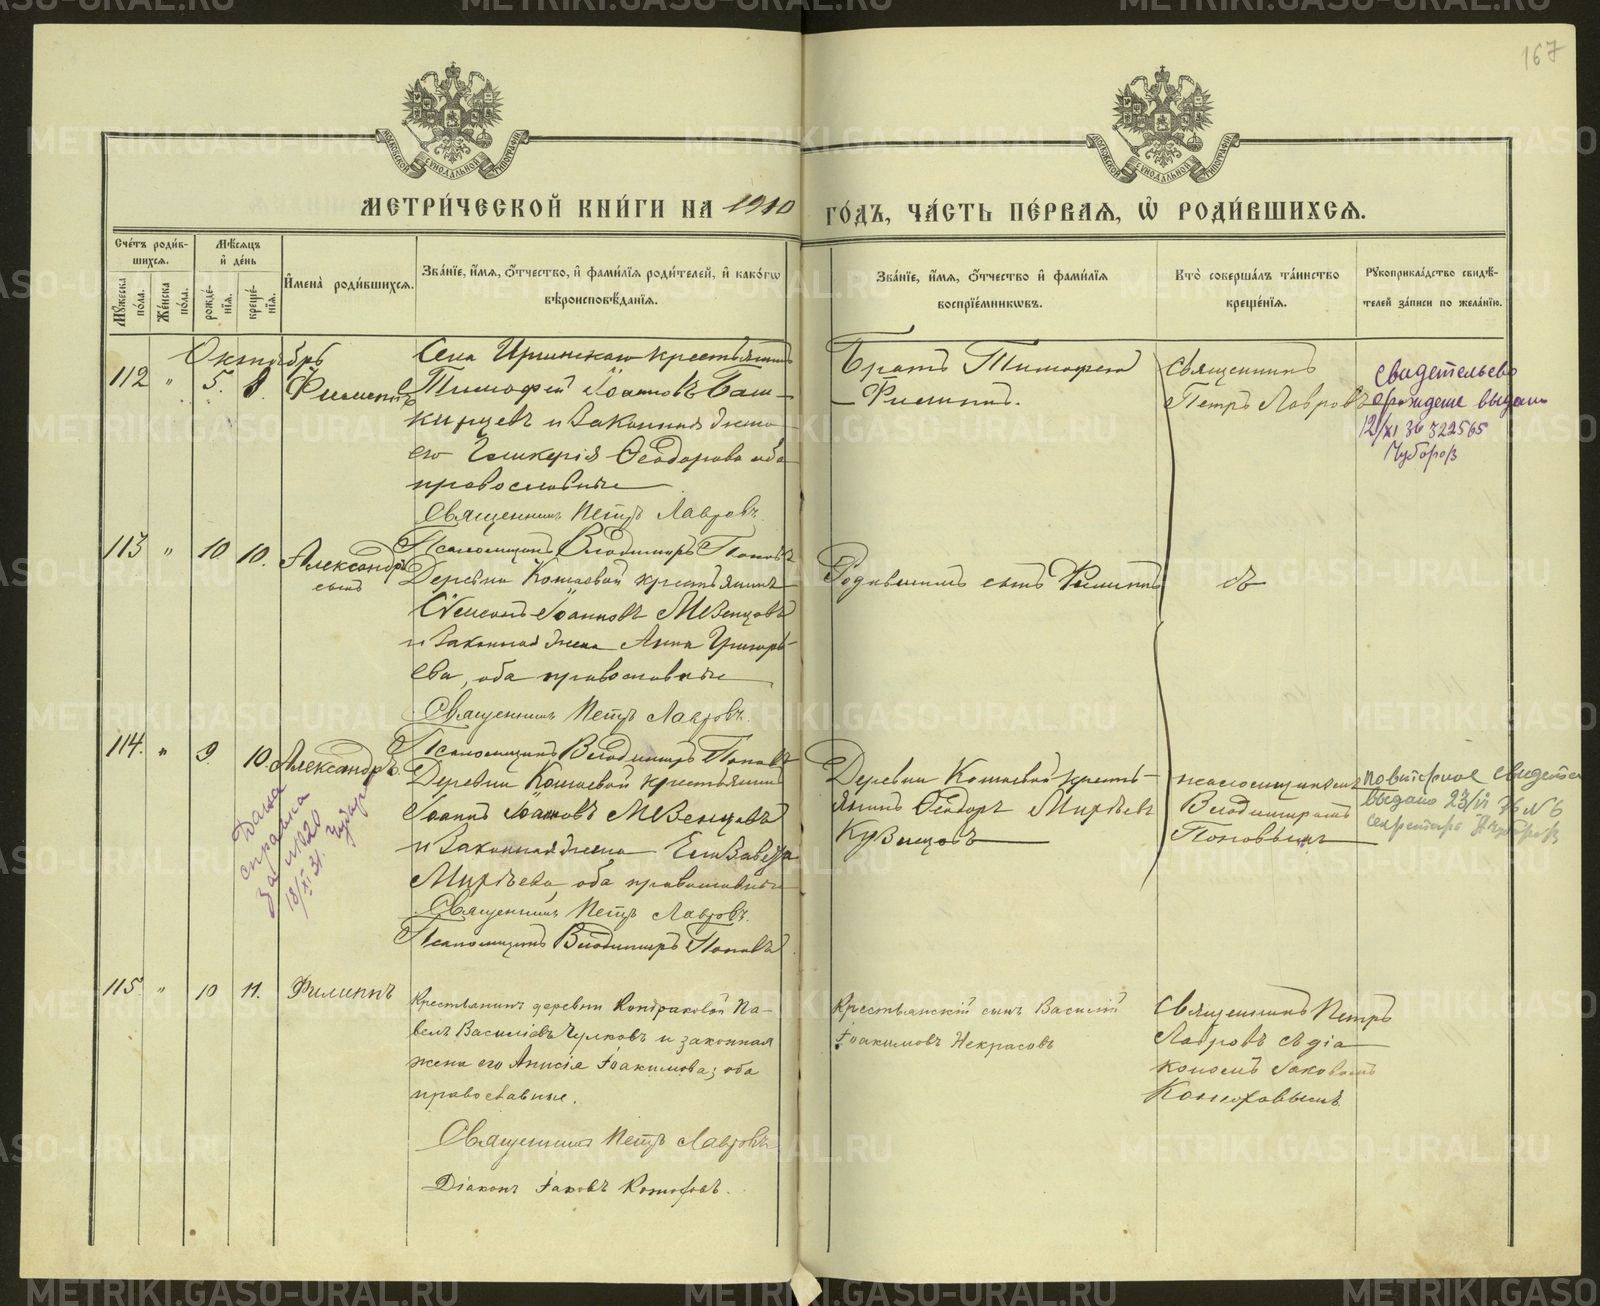 167
МЕТРИ́ЧЕСКОЙ КНИ́ГИ НА 1910 ГО́ДЪ, ЧА́СТЬ ПЕ́РВАЯ, Ѡ РОДИ́ВШИХСЯ.
Сче́тъ роди́вшихся.
Мꙋ́жеска по́ла.
Же́нска по́ла.
Мѣ́сяцъ и де́нь
рожде́нія.
креще́нія.
Имена̀ роди́вшихся.
Зва́нїе, и́мя, о́тчество, и фами́лїя роди́телей, и како́гѡ
вѣроисповѣ́данїя.
Зва́нїе, и́мя, о́тчество и фами́лїя
воспрїе́мниковъ.
Кто̀ соверша́лъ та́инство
креще́нїя.
Рꙋкоприкла́дство свидѣ́-
телей за́писи по жела́нїю.
Октябрь
112 " 5. 8. Филиппъ
Села Иргинскаго крестьянинъ
Тимофей Іоанновъ Баш-
кирцевъ и законная жена
его Гликерія Ѳеодорова оба
православные
Священникъ Петръ Лавровъ.
Псаломщикъ Владимиръ Поповъ
Братъ Тимофея
Филиппъ.
Священникъ
Петръ Лавровъ
свидетельсво
о рождение выдано
12/XI 36 322565
Чубаров
113 " 10 10. Александръ
сынъ
Деревни Кошаевой крестьянинъ
Симеонъ Іоанновъ Мѣзенцовъ
и законная жена Анна Григорь-
ева, оба православные
Священникъ Петръ Лавровъ.
Псаломщикъ Владимиръ Поповъ
сынъ Филиппъ
114. " 9 10. Александръ.
Дана
справка
за №620
18/XI 31.
Деревни Кошаевой крестьянинъ
Іоаннъ Іоанновъ Мѣзенцовъ
и законная жена Елизавета
оба православные
Священникъ Петръ Лавровъ.
Псаломщикъ Владимиръ Поповъ
Деревни Кошаевой кресть-
янинъ Ѳеодоръ
Кузнецовъ
псаломщикомъ
Владимиромъ
Поповымъ
повторное свидетел
выдано
секретарь
115. " 10 11. Филиппъ
Крестьянинъ деревни Кондраковой Па-
велъ Василіевъ Чулковъ и законная
жена его Анисія Іоакимова; оба
православные.
Священникъ Петръ Лавровъ
Діаконъ Іаковъ Конюховъ.
Крестьянскій сынъ Василій
Іоакимовъ Некрасовъ
Священникъ Петръ
Лавровъ съ діа-
кономъ Іаковомъ
Конюховымъ
METRIKI.GASO-URAL.RU